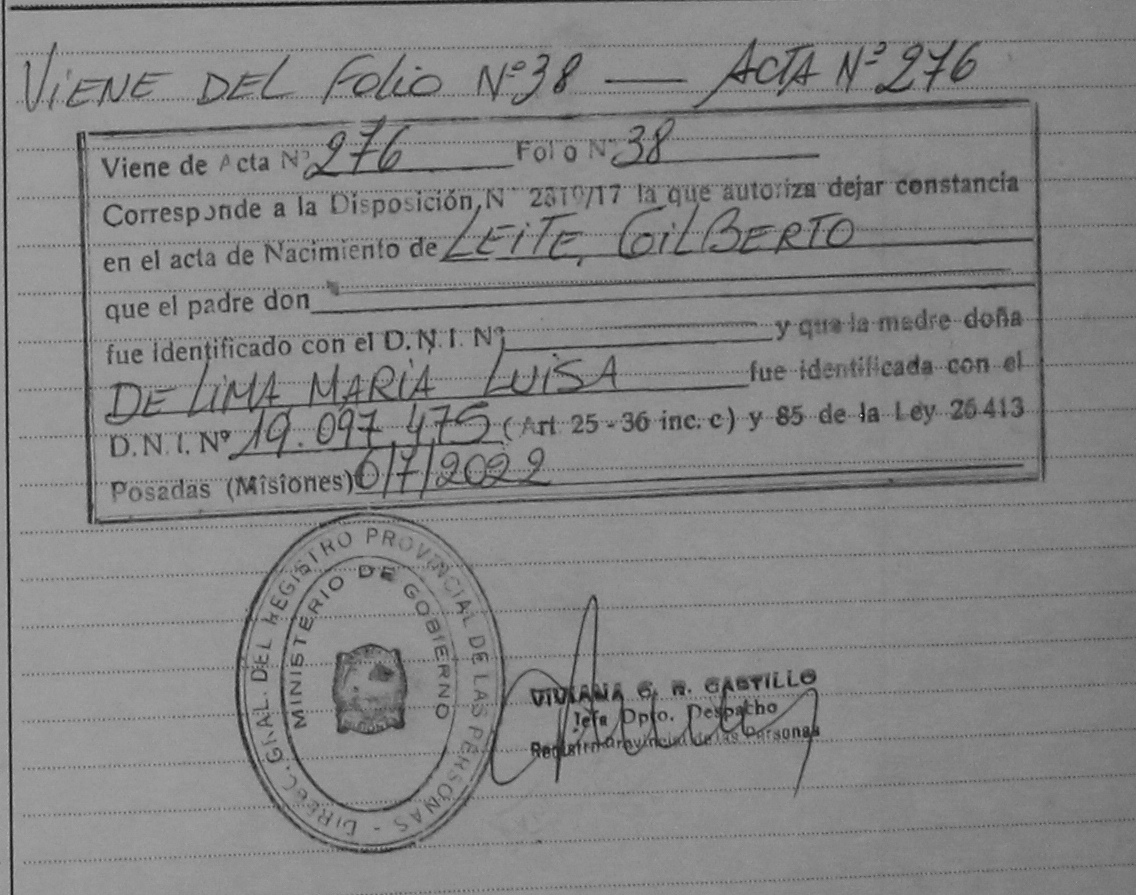 VIENE DEL FOLIO Nº38 — ACTA Nº 276
Viene de Acta Nº 276 Folio Nº 38
Corresponde a la Disposición, Nº 2819/17 la que autoriza dejar constancia
en el acta de Nacimiento de LEITE, GILBERTO
que el padre don
fue identificado con el D.N.I. Nº y que la madre doña
DE LIMA MARIA LUISA fue identificada con el
D.N.I. Nº 19.097.475 (Art. 25 - 36 inc. c) y 85 de la Ley 26.413
Posadas (Misiones) 6/7/2022
DIRECC. GRAL. DEL REGISTRO PROVINCIAL DE LAS PERSONAS -
MINISTERIO DE GOBIERNO
VIVIANA G. R. CASTILLO
Jefa Dpto. Despacho
Registro Provincial de las Personas